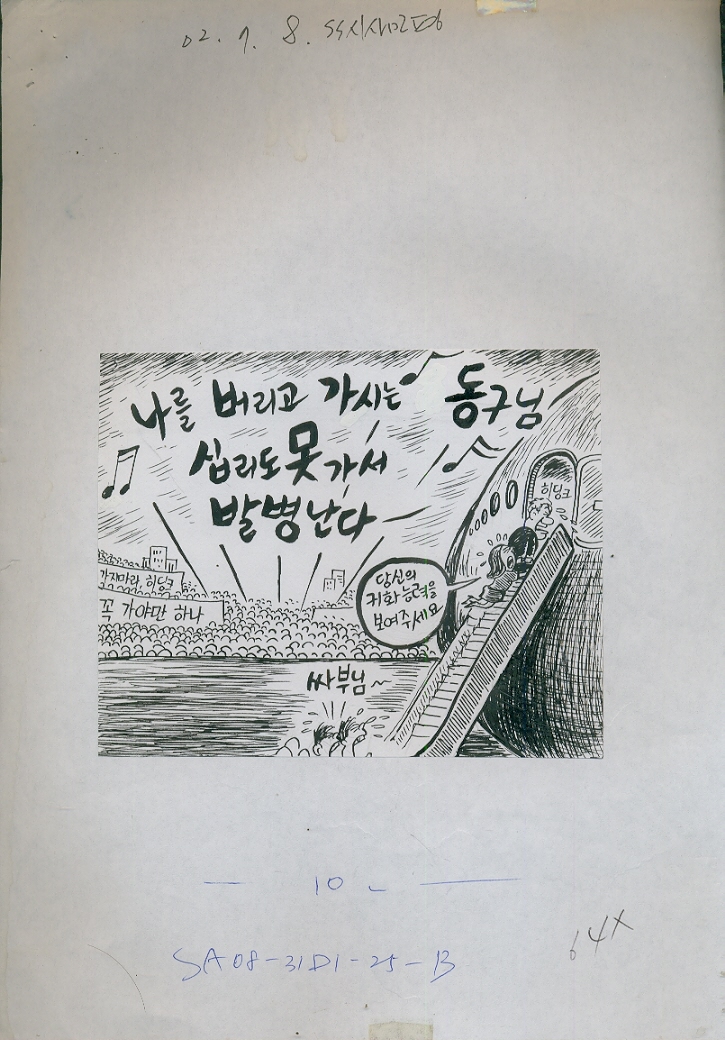 02. 7. 8.
나를 버리고 가시는
동구님
십리도 못 가서
발병난다
히딩크
가지마라, 히딩크
꼭 가야만 하나
당신의
귀화능력을
보여주세요
싸부님~
10
SA08-31D1-25-B
64X